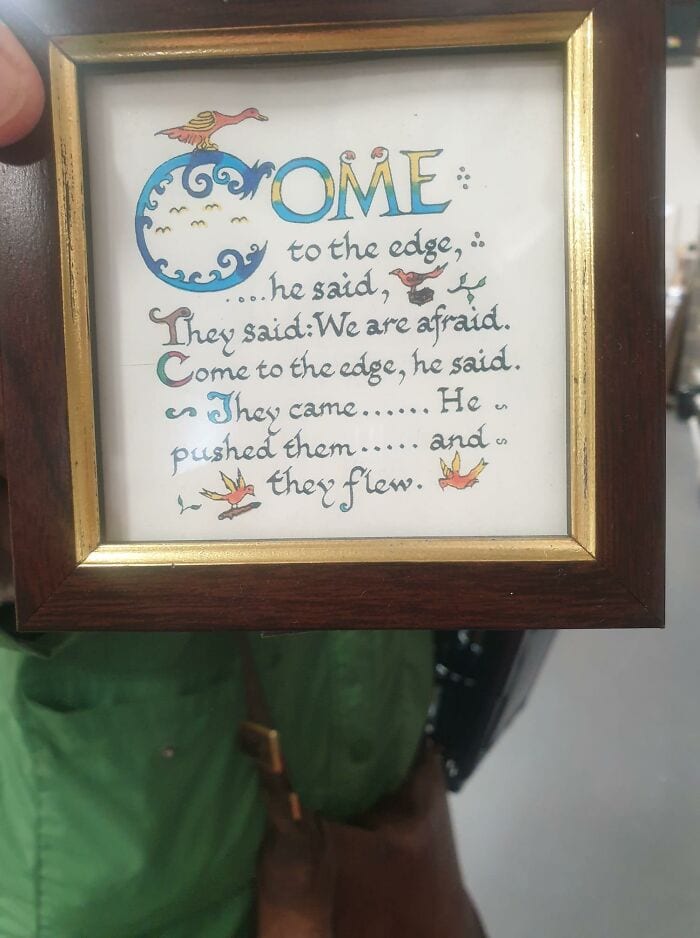 COME
to the edge,
....he said,
They said: We are afraid.
Come to the edge, he said.
They came...... He
pushed them..... and
they flew.